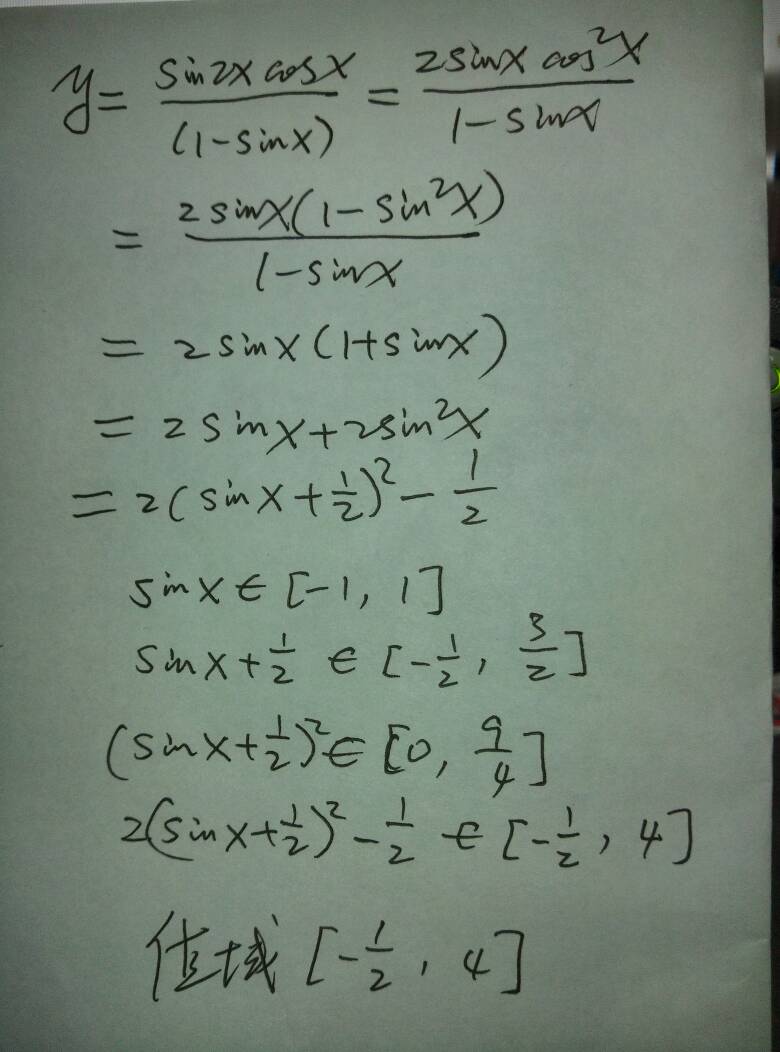 y = sin2x cosx / (1-sinx) = 2sinx cos²x / 1-sinx
= 2sinx(1-sin²x) / 1-sinx
= 2sinx(1+sinx)
= 2sinx+2sin²x
= 2(sinx+1/2)² - 1/2
sinx ∈ [-1, 1]
sinx+1/2 ∈ [-1/2, 3/2]
(sinx+1/2)² ∈ [0, 9/4]
2(sinx+1/2)² - 1/2 ∈ [-1/2, 4]
值域 [-1/2, 4]